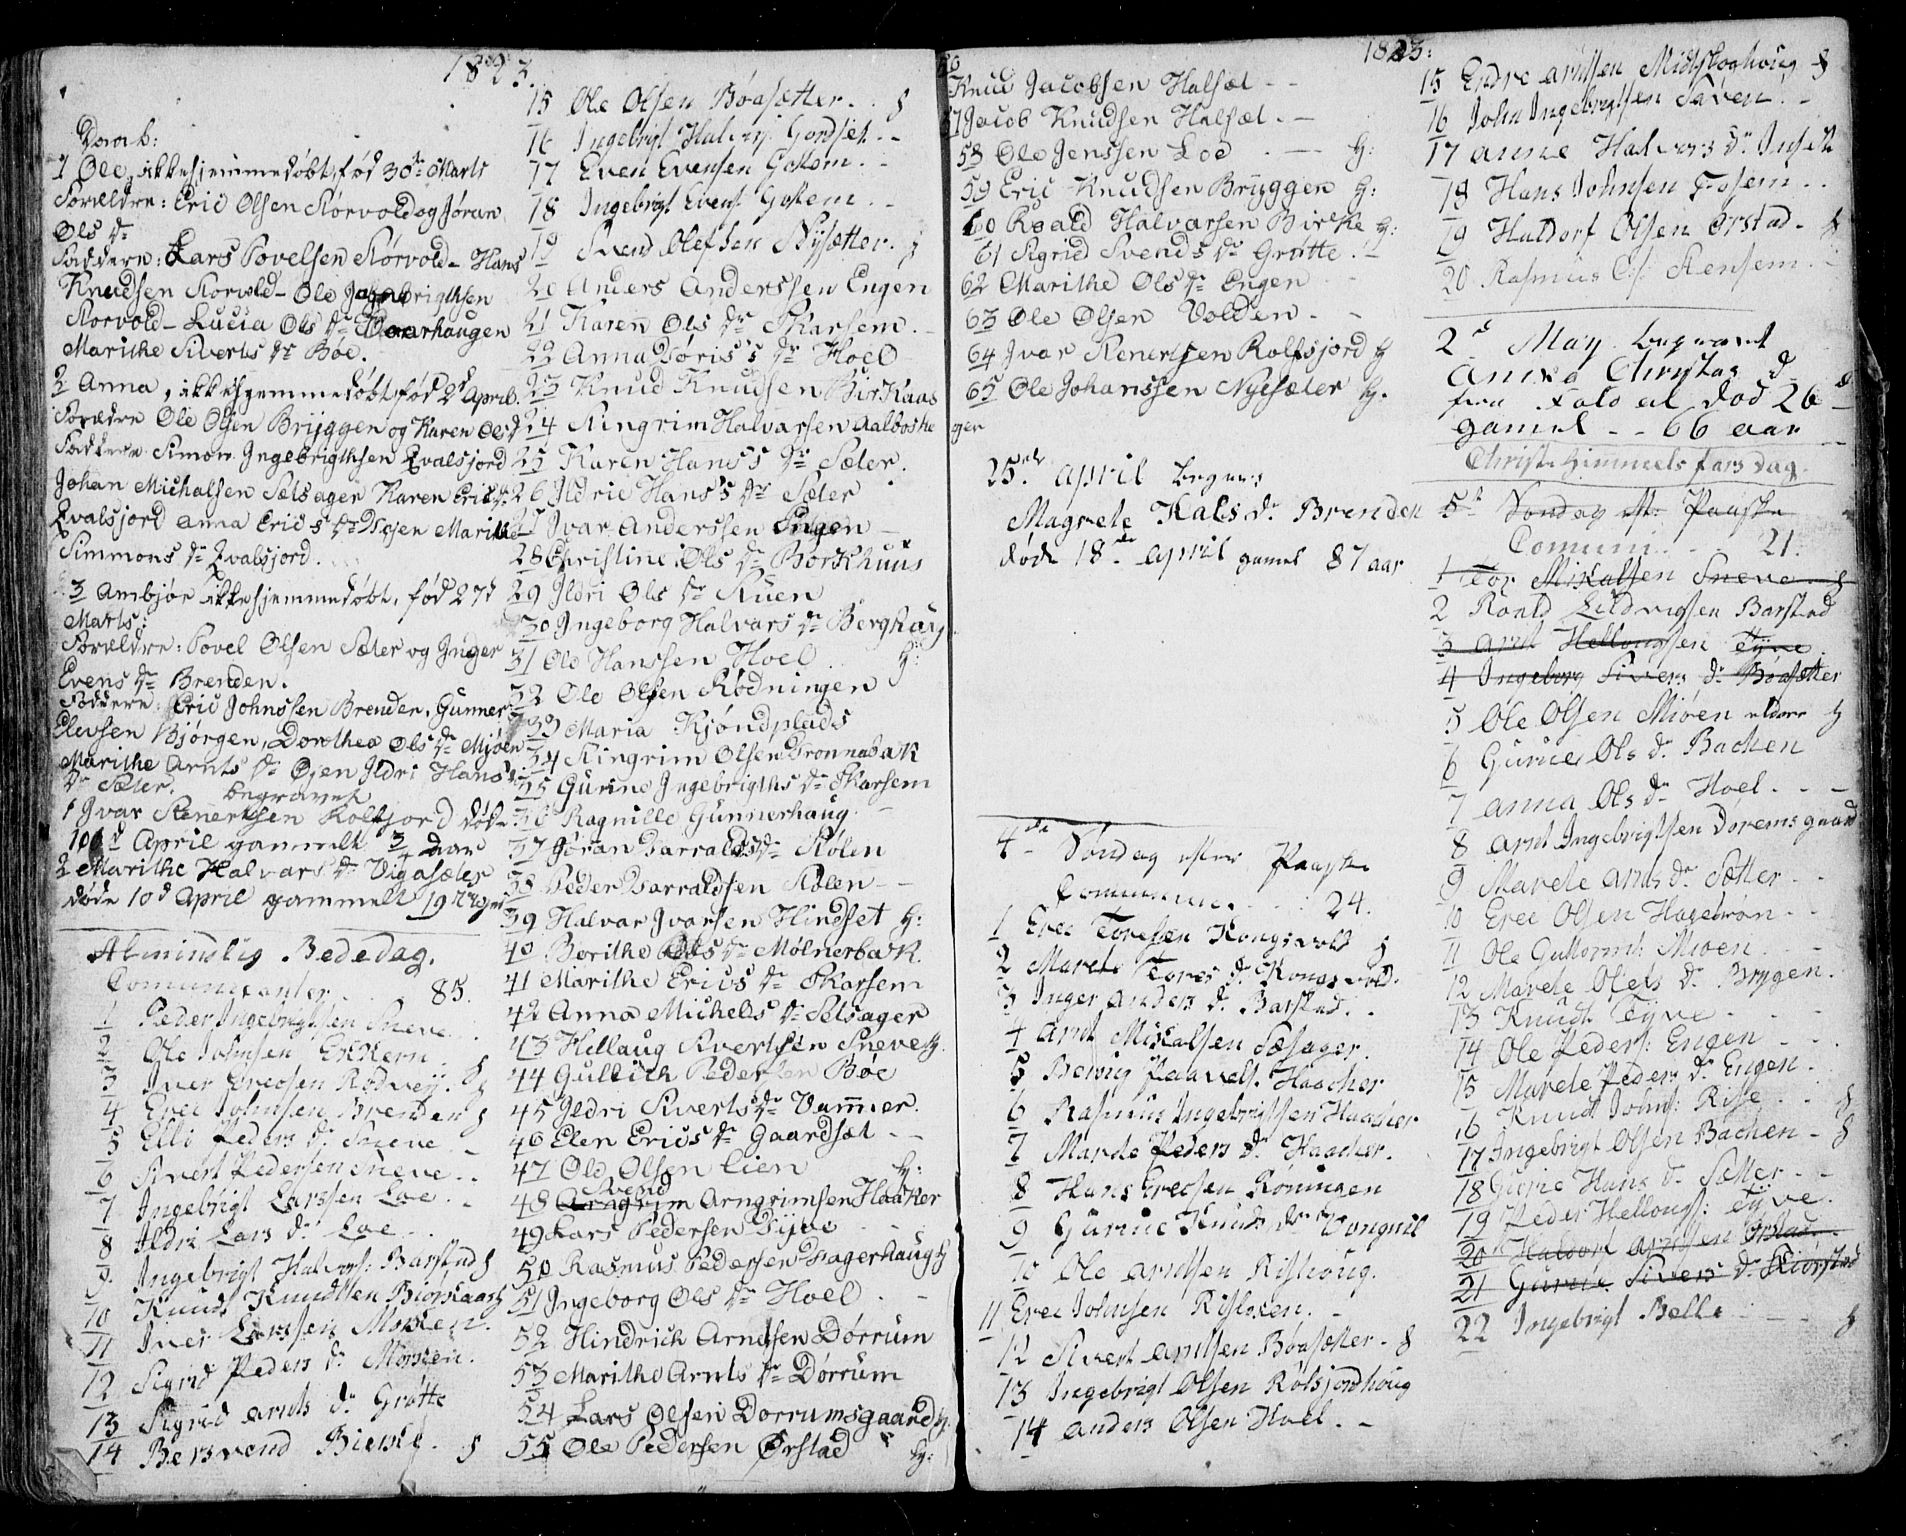 1823.
Døpte:
1 Ole, ikke hjemmedøbt, fød 30te Marts
Forældre: Eric Olsen Kørvold og Jøran
Ols Dr
Faddere: Lars Povelsen Kørvold - Hans
Knudsen Korvold - Ole Ingebrigthsen
Korvold - Lucia Ols Dr Vaarhaugen
Marithe Siverts Dr Böe.
2 Anna, ikke hjemmedøbt, fød 2d April.
Forældre Ole Olsen Bryggen og Karen Ols d
Faddere Simon Ingebrigthsen Qvalsjord
Johan Michalsen Sætsager Karen Erics Dr
Qvalsjord Anna Erics Dr Marithe
Simmons Dr Qvalsjord.
3 Ambjør ikke hjemmedøbt, fød 27d
Marts:
Forældre: Povel Olsen Sæter og Inger
Evens Dr Brenden.
Faddere: Eric Johnssen Brenden, Gunner
Elevsen Bjørgen, Dorthea Ols Dr Mjøen
Marithe Arnts Dr Øien Ildri Hans's
Dr Sæter.
begravet
1 Ivar Stenersen Rolfsjord døde
10d April gammelt 3/4 aar
2 Marithe Halvars Dr Vigasæter
døde 10d April gammelt 19 uger
Almindelig Bededag.
Comunicanter 85.
1 Peder Ingebrigtsen Sneve
2 Ole Johnsen Ekkern
3 Iver Erecsen Rödvey. H
4 Erec Johnsen Brenden H
5 Elli Peders Dr Sneve
6 Sivert Pedersen Sneve
7 Ingebrigt Larssen Loe
8 Ildri Lars Dr Loe
9 Ingebrigt Halvors: Barstad H
10 Knud Knudtsen Biörkaas H
11 Iver Larssen Morken.
12 Sigrid Peders Dr Morken.
13 Sigrid Arnts Dr Grøtte
14 Bersvend H
15 Ole Olsen Böasætter. H
16 Ingebrigt Halvors: Gordset
17 Even Evensen Gottem
18 Ingebrigt Evens: Gottem
19 Svend Olefsen Nysætter. H
20 Anders Anderssen Engen
21 Karen Ols Dr Skarsem.
22 Anna Töris's Dr Hoel
23 Knud Knudsen Birkaas
24 Ringrim Halvarsen Aalboskegen
25 Karen Hans's Dr Sæter.
26 Ildrie Hans's Dr Sæter
27 Ivar Anderssen Engen
28 Christine Ols Dr Borkhuus
29 Ildri Ols Dr Stuen
30 Ingeborg Halvars Dr Berghaug
31 Ole Hanssen Hoel H:
32 Ole Olsen Rødningen
33 Maria Kjøndplads
34 Ringrim Olsen Bronnabak
35 Gurine Ingebrigths Dr Skarsem
36 Ragnille Gunnerhaug
37 Jøran Tarralds Dr Stölen
38 Peder Tarraldsen Stölen
39 Halvar Ivarsen Hindset H:
40 Børithe Ols Dr Mølnerbak.
41 Marithe Erics Dr Skarsem
42 Anna Michels Dr Sætsager
43 Hellaug Sivertsen Sneve H.
44 Gullich Pedersen Böe
45 Ildri Siverts Dr Vammer.
46 Elen Erics Dr Gaardsæt
47 Ole Olsen Lien H:
48 Svend Arngrim Arngrimsen Haaker
49 Lars Pedersen Tyve
50 Rasmus Pedersen Fagerhaug H
51 Ingeborg Ols Dr Hoel
52 Hindrich Arndsen Dørrum
53 Marithe Arnts Dr Dørrum
54 Lars Olsen Dorrumsgaard H.
55 Ole Pedersen Ørstad H:
1823:
56
Knud Jacobsen Halsæt
57 Jacob Knudsen Halsæt
58 Ole Jenssen Loe H:
59 Eric Knudsen Bryggen H:
60 Roald Halvarsen Birke H:
61 Sigrid Svends Dr Grøtte.
62 Marithe Ols Dr Engen
63 Ole Olsen Volden
64 Ivar Stenersen Rolfsjord H
65 Ole Johanssen Nysæter H.
25de April begrav:
Magrete Kals Dr Brenden
døde 18de April gamel 87 aar
4de Søndag efter Paaske
Communic. 24.
1 Erec Toresen Kongsvold H
2 Marete Tores Dr Kongsvold.
3 Inger Anders Dr Barstad.
4 Arnt Mikalsen Sæsager.
5 Bervig Paavels. Haacker
6 Rasmus Ingebrigtsen Haacker
7 Marete Peders Dr Haacker.
8 Hans Erecsen Röningen
9 Gurine Knuds Dr Vongnil
10 Ole Arndtsen Rishoug.
11 Erec Johnsen
12 Sivert Arndtsen Böasætter. H
13 Ingebrigt Olsen Rolsjordhoug
14 Anders Olsen Hoel.
15 Endre Arndtsen Midtskoghoug H
16 John Ingebrigtsen Saven.
17 Anne Halvors Dr Inset
18 Hans Johnsen Fossem
19 Haldorf Olsen Ørstad. H
20 Rasmus Ols: Stensem
2d May begravet
Anna Christas d.
fra død 26de
gamel 66 aar
Christi himmelsfarsdag.
5te Søndag eft: Paaske
Comuni. 21.
1 Tor Mikalsen Sneve H
2 Roald Eildvigsen Barstad
3 Arnt Hellougsen Tyve
4 Ingeborg Sivers Dr Böasætter
5 Ole Olsen Miöen eldere H
6 Gurie Ols Dr Backen
7 Anna Ols Dr Hoel
8 Arnt Ingebrigtsen Doremsgaard
9 Marete Arnts Dr Sætter
10 Erec Olsen Hagebrøn
11 Ole Guttorms: Miöen
12 Marete Olefs Dr Bryggen.
13 Knudt Tyve
14 Ole Peders: Engen
15 Marete Peders Dr Engen.
16 Knudt Johns: Rise H
17 Ingebrigt Olsen Backen H
18 Gurie Hans Dr Sætter
19 Peder Hellougs: Tyve.
20 Haldorf Arntsen Ørstad
21 Gurie Sivers Dr Kiörstad
22 Ingebrigt Belle H